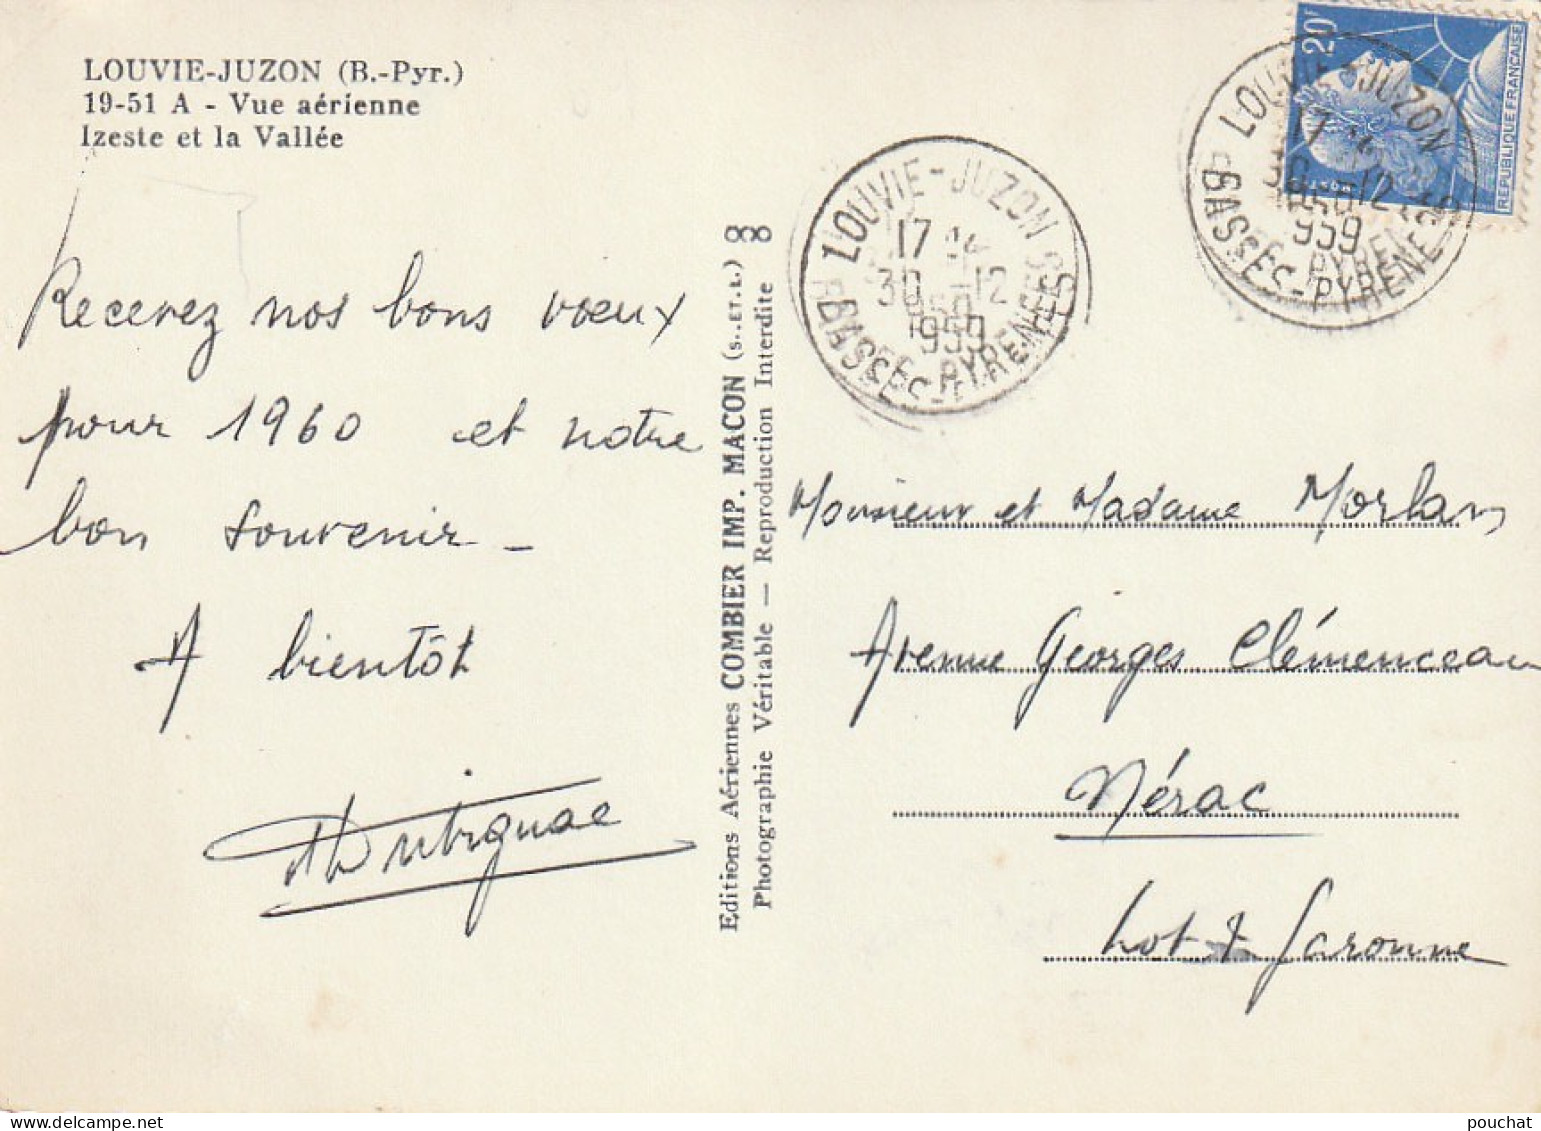 LOUVIE-JUZON (B.-Pyr.)
19-51 A - Vue aérienne
Izeste et la Vallée
Recevez nos bons vœux
pour 1960 et notre
bon souvenir -
A bientôt
Editions Aériennes COMBIER IMP. MACON (S.-ET-L.)
Photographie Véritable — Reproduction Interdite
LOUVIE-JUZON
17 H
30 -12
1959
BASSES-PYRENEES
20F
REPUBLIQUE FRANÇAISE
LOUVIE-JUZON
17 H
30 -12
1959
BASSES-PYRENEES
Monsieur et Madame Morlan
Avenue Georges Clémenceau
Nérac
Lot & Garonne
pouchat